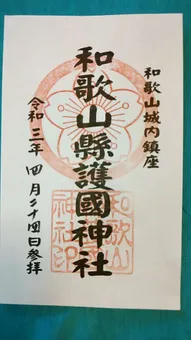 和歌山城内鎮座
和歌山縣護國神社
令和三年四月二十四日参拝
和歌山
縣護國
神社印